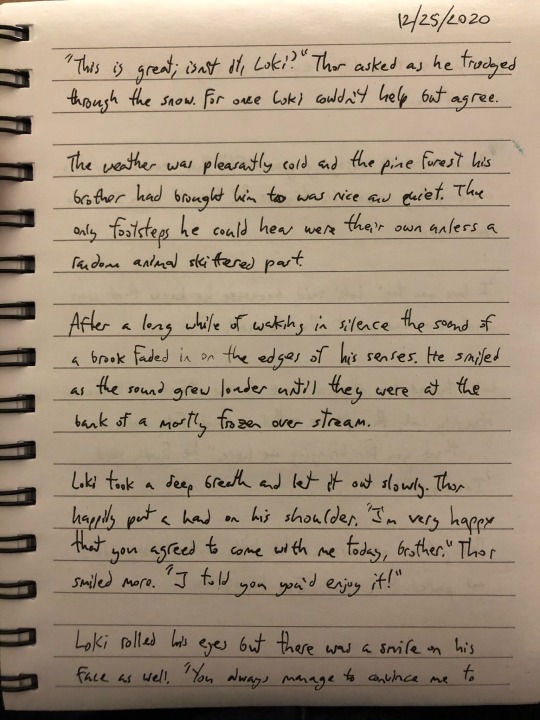 12/25/2020
"This is great, isn't it, Loki?" Thor asked as he trudged
through the snow. For once Loki couldn't help but agree.
The weather was pleasantly cold and the pine forest his
brother had brought him to was nice and quiet. The
only footsteps he could hear were their own unless a
random animal skittered part.
After a long while of waking in silence the sound of
a brook faded in on the edges of his senses. He smiled
as the sound grew louder until they were at the
bank of a mostly frozen over stream.
Loki took a deep breath and let it out slowly. Thor
happily put a hand on his shoulder. "I'm very happy
that you agreed to come with me today, brother." Thor
smiled more. "I told you you'd enjoy it!"
Loki rolled his eyes but there was a smile on his
face as well. "You always manage to convince me to